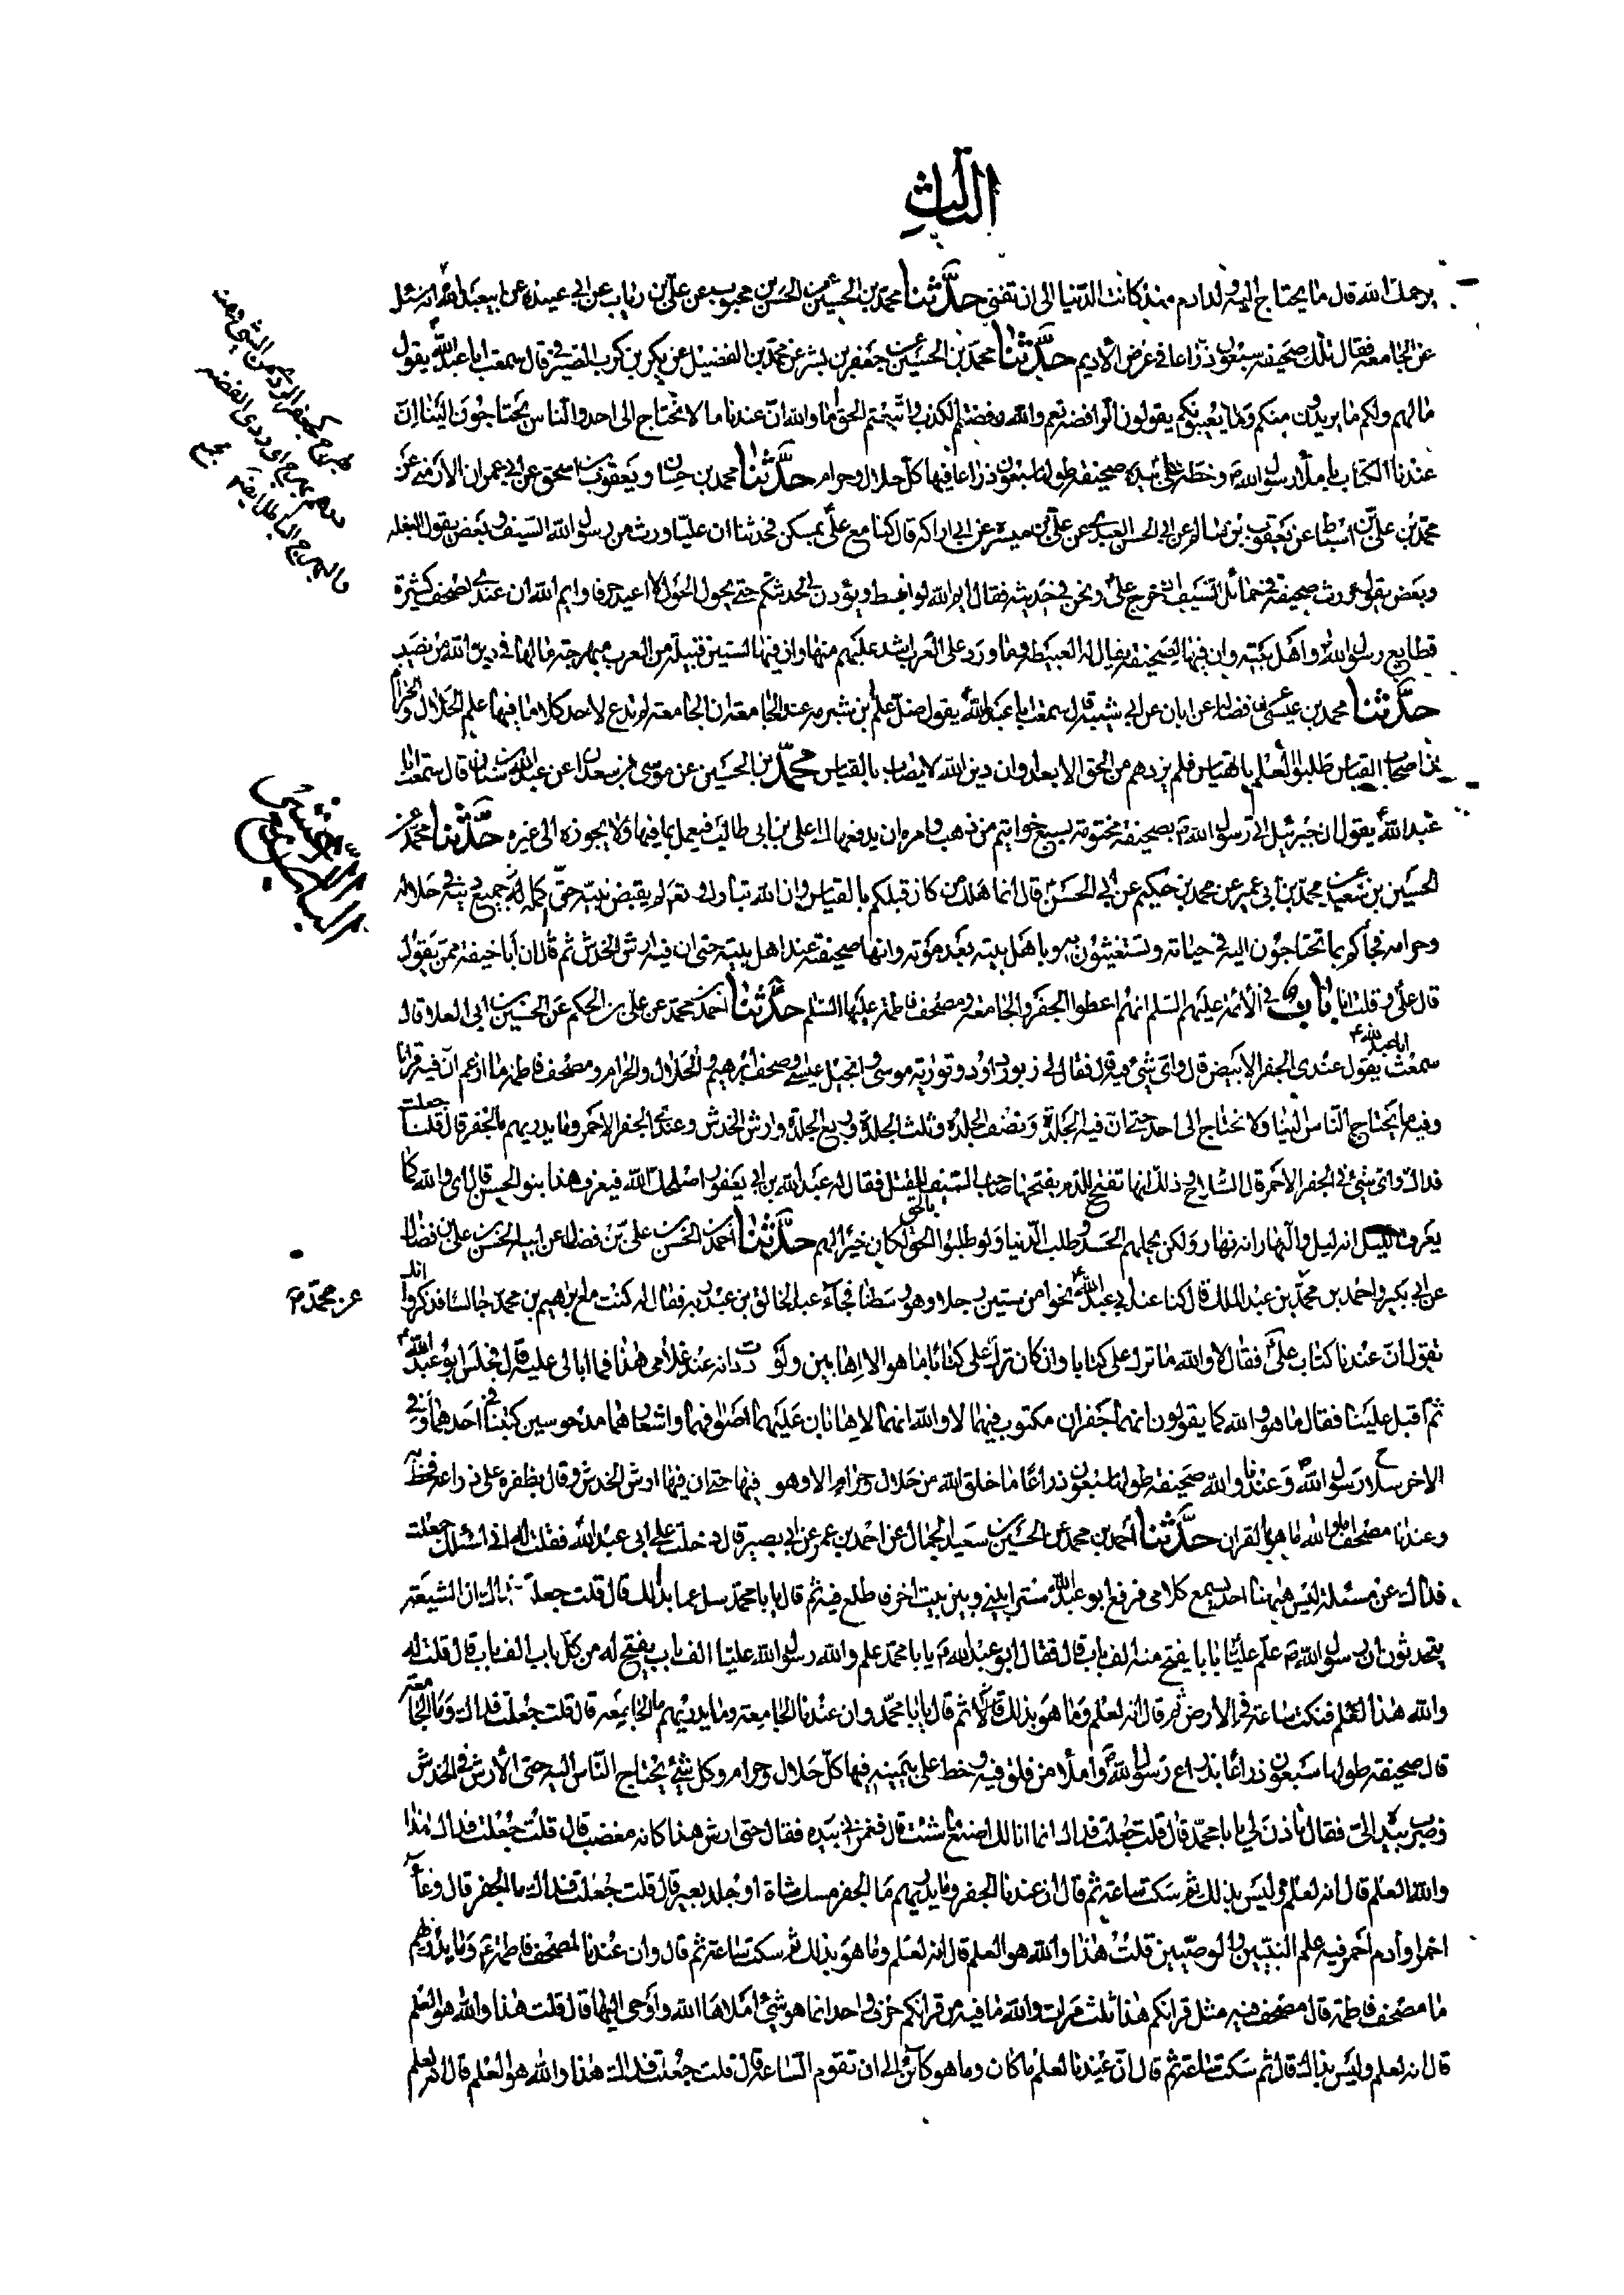 الثالث
يرحمك الله قال ما يحتاج اليه ولد ادم منذ كانت الدنيا الى ان تفنى حدثنا محمد بن الحسين عن الحسن بن محبوب عن علي بن رياب عن ابي عبيدة عن ابيعبد الله انه سئل
عن الجامعة فقال تلك صحيفة سبعون ذراعا في عرض الأديم حدثنا محمد بن الحسين عن جعفر بن بشر عن محمد بن الفضيل عن بكر بن كرب الصيرفي قال سمعت ابا عبد الله يقول
ما لهم ولكم ما يريدون منكم وما يعيبونكم يقولون الرافضة نعم والله رفضتم الكذب واتبعتم الحق اما والله ان عندنا ما لا نحتاج الى احد والناس يحتاجون الينا ان
عندنا الكتاب باملاء رسول الله ص وخطه علي بيده صحيفة طولها سبعون ذراعا فيها كل حلال وحرام حدثنا محمد بن حسان ويعقوب بن اسحق عن ابي عمران الأرمني عن
محمد بن علي بن اسباط عن يعقوب بن سالم عن ابي الحسن العبدي عن علي بن ميسرة عن ابي اراكة قال كنا مع علي بمسكن فحدثنا ان عليا ورث من رسول الله السيف وبعض يقول البغلة
وبعض يقول ورث صحيفة في حمائل السيف اذ خرج علي ونحن في حديثه فقال ايم الله لو انبسط ويؤذن لي لحدثتكم حتى يحول الحول لا اعيد حرفا وايم الله ان عندي لصحف كثيرة
قطايع رسول الله واهل بيته وان فيها لصحيفة يقال لها العبيطة وما ورد على العرب اشد عليهم منها وان فيها لستين قبيلة من العرب مبهرجة ما لها في دين الله من نصيب
حدثنا محمد بن عيسى عن فضالة عن ابان عن ابي شيبة قال سمعت ابا عبد الله يقول ضل علم ابن شبرمة عند الجامعة ان الجامعة لم تدع لاحد كلاما فيها علم الحلال والحرام
ان اصحاب القياس طلبوا العلم بالقياس فلم يزدهم من الحق الا بعدا وان دين الله لا يصاب بالقياس محمد بن الحسين عن موسى بن سعدان عن عبد الله بن سنان قال سمعت ابا
عبد الله يقول ان جبرئيل اتى رسول الله ص بصحيفة مختومة بسبع خواتيم من ذهب وامره ان يدفعها الى علي بن ابي طالب فيعمل بما فيها ولا يجوزه الى غيره حدثنا محمد عن
الحسين بن سعيد عن محمد بن ابي عمير عن محمد بن حكيم عن ابي الحسن قال انما هلك من كان قبلكم بالقياس وان الله تبارك وتعالى لم يقبض نبيه حتى اكمل له جميع دينه في حلاله
وحرامه فجاءكم بما تحتاجون اليه في حياته وتستغيثون به وباهل بيته بعد موته وانها صحيفة عند اهل بيته حتى ان فيه ارش الخدش ثم قال ان ابا حنيفة ممن يقول
قال علي وقلت انا باب في الأئمة عليهم السلم انهم اعطوا الجفر والجامعة ومصحف فاطمة عليها السلم حدثنا احمد بن محمد عن علي بن الحكم عن الحسين بن ابي العلا قال
سمعت ابا عبد الله يقول عندي الجفر الابيض قال قلت واي شيء فيه قال فقال لي زبور داود وتورية موسى وانجيل عيسى وصحف ابرهيم والحلال والحرام ومصحف فاطمة ما ازعم ان فيه قرانا
وفيه ما يحتاج الناس الينا ولا نحتاج الى احد حتى ان فيه الجلدة ونصف الجلدة وثلث الجلدة وربع الجلدة وارش الخدش وعندي الجفر الاحمر وما يدريهم ما الجفر قال قلنا جعلت
فداك واي شيء في الجفر الاحمر قال السلاح وذلك انها تفتح للدم يفتحها صاحب السيف للقتل فقال له عبد الله بن ابي يعفور اصلحك الله فيعرف هذا بنو الحسن قال اي والله كما
يعرف الليل انه ليل والنهار انه نهار ولكن يحملهم الحسد وطلب الدنيا ولو طلبوا الحق بالحق لكان خيرا لهم حدثنا احمد بن الحسن بن علي بن فضال عن ابيه الحسن بن علي بن فضال
عن ابي بكير واحمد بن محمد عن محمد بن عبد الملك قال كنا عند ابي عبد الله نحوا من ستين رجلا وهو وسطنا فجاء عبد الخالق بن عبد ربه فقال له كنت مع ابرهيم بن محمد جالسا فذكروا انك
تقول ان عندنا كتاب علي فقال لا والله ما ترك علي كتابا وان كان ترك علي كتابا ما هو الا اهابين ولوددت انه عند غلامي هذا فما ابالي عليه قال فجلس ابو عبد الله
ثم اقبل علينا فقال ما هو والله كما يقولون انهما جفران مكتوب فيهما لا والله انهما لاهابان عليهما اصوافهما واشعارهما مدحوسين كتبا في احدهما وفي
الاخر سلاح رسول الله ص وعندنا والله صحيفة طولها سبعون ذراعا ما خلق الله من حلال وحرام الا وهو فيها حتى ان فيها ارش الخدش وقال بظفره على ذراعه فخط به
وعندنا مصحف اما والله ما هو بالقران حدثنا احمد بن محمد عن الحسين بن سعيد الجمال عن احمد بن عمر عن ابي بصير قال دخلت على ابي عبد الله فقلت له اني اسئلك جعلت
فداك عن مسئلة ليس ههنا احد يسمع كلامي فرفع ابو عبد الله سترا بيني وبين بيت اخر فاطلع فيه ثم قال يا با محمد سل عما بدا لك قال قلت جعلت فداك ان الشيعة
يتحدثون ان رسول الله ص علم عليا بابا يفتح منه الف باب قال فقال ابو عبد الله يا با محمد علم والله رسول الله عليا الف باب يفتح له من كل باب الف باب قال قلت له
والله هذا العلم فنكت ساعة في الأرض ثم قال انه لعلم وما هو بذلك ثم قال يا با محمد وان عندنا الجامعة وما يدريهم ما الجامعة قال قلت جعلت فداك وما الجامعة
قال صحيفة طولها سبعون ذراعا بذراع رسول الله واملاء من فلق فيه وخط علي بيمينه فيها كل حلال وحرام وكل شيء يحتاج الناس اليه حتى الأرش في الخدش
وضرب بيده الي فقال تاذن لي يا با محمد قال قلت جعلت فداك انما انا لك اصنع ما شئت قال فغمزني بيده فقال حتى ارش هذا كانه مغضب قال قلت جعلت فداك هذا
والله العلم قال انه لعلم وليس بذلك ثم سكت ساعة ثم قال ان عندنا الجفر وما يدريهم ما الجفر مسك شاة او جلد بعير قال قلت جعلت فداك ما الجفر قال وعاء
احمر او ادم احمر فيه علم النبيين والوصيين قلت هذا والله هو العلم قال انه لعلم وما هو بذلك ثم سكت ساعة ثم قال وان عندنا لمصحف فاطمة ع وما يدريهم
ما مصحف فاطمة قال مصحف فيه مثل قرانكم هذا ثلث مرات والله ما فيه من قرانكم حرف واحد انما هو شيء املاها الله واوحى اليها قال قلت هذا والله هو العلم
قال انه لعلم وليس بذاك قال ثم سكت ساعة ثم قال ان عندنا لعلم ما كان وما هو كائن الى ان تقوم الساعة قال قلت جعلت فداك هذا والله هو العلم قال انه لعلم
عن محمد